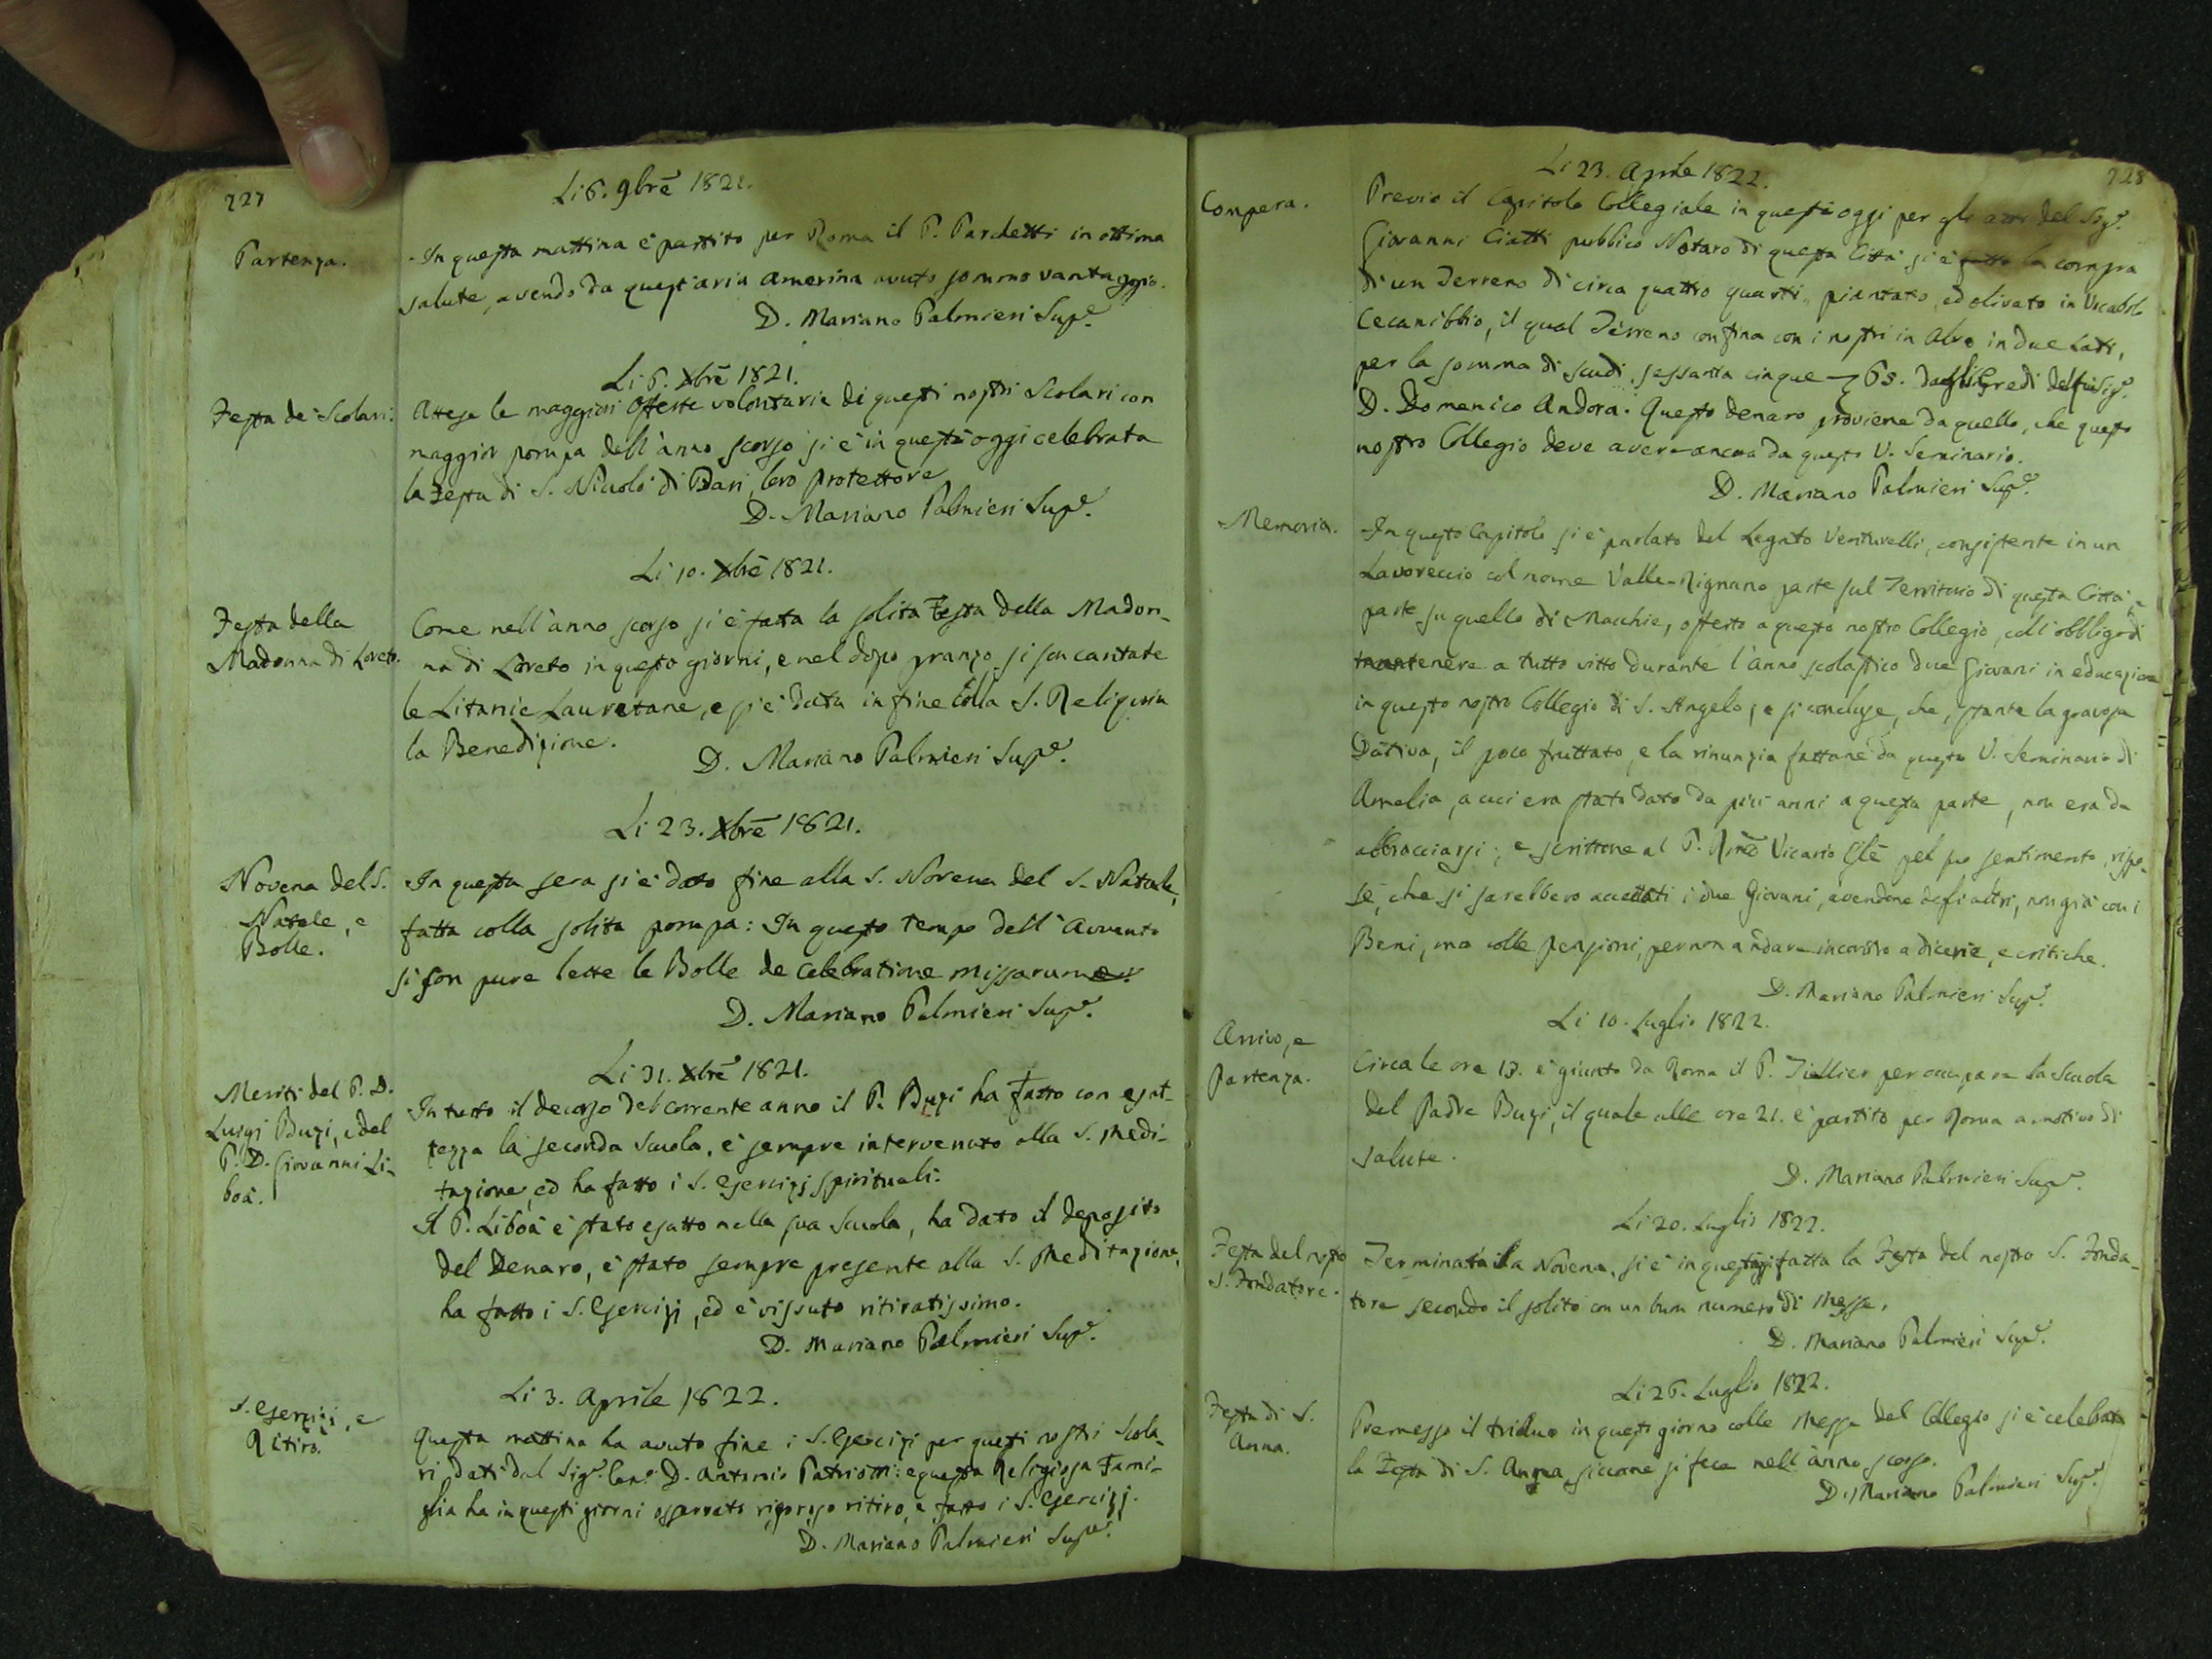 227
Li 6. 9brē 1821.
Partenza.
In questa mattina è partito per Roma il P. Parchetti in ottima
salute, avendo da quest'aria amerina avuto sommo vantaggio.
D. Mariano Palmieri Supe.
Li 6. Xbrē 1821.
Festa de' Scolari.
Attese le maggiori offerte volontarie di questi nostri Scolari con
maggior pompa dell'anno scorso si è in quest'oggi celebrata
la Festa di S. Niccolò di Bari loro protettore
D. Mariano Palmieri Supe.
Li 10. Xbrē 1821.
Festa della
Madonna di Loreto.
Come nell'anno scorso si è fatta la solita Festa della Madon-
na di Loreto in questo giorni, e nel dopo pranzo si son cantate
le Litanie Lauretane, e si è data in fine colla S. Reliquia
la Benedizione.
D. Mariano Palmieri Supe.
Li 23. Xbrē 1821.
Novena del S.
Natale, e
Bolle.
In questa sera si è dato fine alla S. Novena del S. Natale,
fatta colla solita pompa: In questo tempo dell'Avvento
si son pure lette le Bolle de celebratione missarum
D. Mariano Palmieri Supe.
Li 31. Xbrē 1821.
Meriti del P. D.
Luigi Buzi, e del
P. D. Giovanni Li-
boà.
In tutto il decorso del corrente anno il P. Buzi ha fatto con esat-
tezza la seconda Scuola, è sempre intervenuto alla S. Medi-
tazione, ed ha fatto i S. Esercizj spirituali.
Il P. Liboà è stato esatto nella sua Scuola, ha dato il deposito
del Denaro, è stato sempre presente alla S. Meditazione,
ha fatto i S. Esercizj, ed è vissuto ritiratissimo.
D. Mariano Palmieri Supe.
Li 3. Aprile 1822.
S. Esercizj, e
Ritiro.
Questa mattina ha avuto fine i S. Esercizj per questi nostri Scola-
ri dati dal Sigr. Can.o D. Antonio Patriotti: e questa Religiosa Fami-
glia ha in questi giorni osservato rigoroso ritiro, e fatto i S. Esercizj.
D. Mariano Palmieri Supe.
228
Li 23. Aprile 1822.
Compera.
Previo il Capitolo Collegiale in quest'oggi per gli atti del Sigr.
Giovanni Ciatti pubblico Notaro di questa Città si è fatta la compra
di un Terreno di circa quattro quarti, piantato, ed olivato in Vocabolo
Cecanibbio, il qual Terreno confina con i nostri in Alvo in due Lati,
per la somma di scudi sessanta cinque 65. dagli Eredi del fu Sigr.
D. Domenico Andora. Questo denaro proviene da quello, che questo
nostro Collegio deve avere ancora da questo V. Seminario.
D. Mariano Palmieri Supe.
Memoria.
In questo Capitolo si è parlato del Legato Venturelli, consistente in un
Lavoreccio col nome Valle-Rignano parte sul Territorio di questa Città, e
parte su quello di Macchie, offerto a questo nostro Collegio, coll'obbligo di
mantenere a tutto vitto durante l'anno scolastico due Giovani in educazione
in questo nostro Collegio di S. Angelo, e si concluse, che, stante la gravosa
Dativa, il poco fruttato, e la rinunzia fattane da questo V. Seminario di
Amelia, a cui era stato dato da più anni a questa parte, non era da
abbracciarsi; e scrittone al P. Rmō Vicario Glē pel suo sentimento, rispo-
se, che si sarebbero accettati i due Giovani, avendone degli altri, non già con i
Beni, ma colle pensioni, per non andare incontro a dicerie, e critiche.
D. Mariano Palmieri Supe.
Li 10. Luglio 1822.
Arrivo, e
partenza.
Circa le ore 13. è giunto da Roma il P. Tullier per occupare la Scuola
del Padre Buzi, il quale alle ore 21. è partito per Roma a motivo di
salute.
D. Mariano Palmieri Supe.
Li 20. Luglio 1822.
Festa del nostro
S. Fondatore.
Terminata la Novena, si è in quest'oggi fatta la Festa del nostro S. Fonda-
tore secondo il solito con un buon numero di Messe.
D. Mariano Palmieri Supe.
Li 26. Luglio 1822.
Festa di S.
Anna.
Premesso il triduo in questo giorno colle Messe del Collegio si è celebrata
la Festa di S. Anna, siccome si fece nell'anno scorso.
D. Mariano Palmieri Supe.